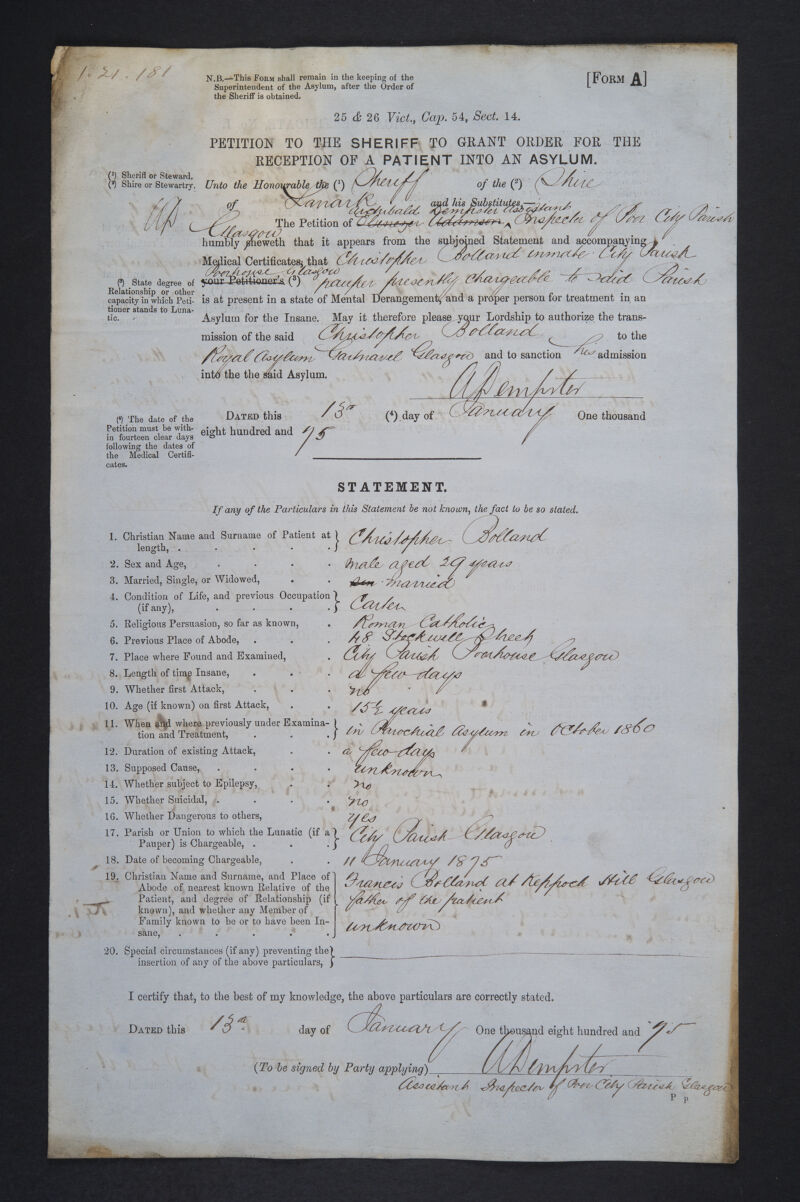 1. 21. 181
N.B.—This Form shall remain in the keeping of the
Superintendent of the Asylum, after the Order of
the Sheriff is obtained.
[Form A]
25 & 26 Vict., Cap. 54, Sect. 14.
PETITION TO THE SHERIFF TO GRANT ORDER FOR THE
RECEPTION OF A PATIENT INTO AN ASYLUM.
(¹) Sheriff or Steward.
(²) Shire or Stewartry.
Unto the Honourable the (¹) Sheriff of the (²) Shire
of Lanark and his Substitutes,—
AD
Archibald Dempster Assistant
The Petition of Adamson, Inspector of Poor City Parish
Glasgow
humbly sheweth that it appears from the subjoined Statement and accompanying
Medical Certificates, that Christopher Bolland inmate City Parish
Poorhouse Glasgow
your Petitioner's (³) pauper presently chargeable to said Parish
(³) State degree of
Relationship or other
capacity in which Peti-
tioner stands to Luna-
tic.
is at present in a state of Mental Derangement, and a proper person for treatment in an
Asylum for the Insane. May it therefore please your Lordship to authorize the trans-
mission of the said Christopher Bolland to the
Royal Asylum Gartnavel Glasgow and to sanction his admission
into the the said Asylum.
ADempster
(⁴) The date of the
Petition must be with-
in fourteen clear days
following the dates of
the Medical Certifi-
cates.
Dated this 13th (⁴) day of January One thousand
eight hundred and 75
STATEMENT.
If any of the Particulars in this Statement be not known, the fact to be so stated.
1. Christian Name and Surname of Patient at
length, . . . . . Christopher Bolland
2. Sex and Age, . . . . male aged 29 years
3. Married, Single, or Widowed, . . married
4. Condition of Life, and previous Occupation
(if any), . . . . . Carter
5. Religious Persuasion, so far as known, . Roman Catholic
6. Previous Place of Abode, . . . 48 Stockwell Street
7. Place where Found and Examined, . City Parish Poorhouse Glasgow
8. Length of time Insane, . . . a few days
9. Whether first Attack, . . . no
10. Age (if known) on first Attack, . . 15½ years
11. When and where previously under Examina-
tion and Treatment, . . . in Parochial Asylum in October 1860
12. Duration of existing Attack, . . a few days
13. Supposed Cause, . . . . unknown
14. Whether subject to Epilepsy, . . no
15. Whether Suicidal, . . . . no
16. Whether Dangerous to others, . . yes
17. Parish or Union to which the Lunatic (if a
Pauper) is Chargeable, . . . City Parish Glasgow
18. Date of becoming Chargeable, . . 11 January 1875
19. Christian Name and Surname, and Place of
Abode of nearest known Relative of the
Patient, and degree of Relationship (if
known), and whether any Member of
Family known to be or to have been In-
sane, . . . . .
Francis Bolland at Keppoch Hill Glasgow
father of the patient
unknown
20. Special circumstances (if any) preventing the
insertion of any of the above particulars,
I certify that, to the best of my knowledge, the above particulars are correctly stated.
Dated this 13th day of January One thousand eight hundred and 75
(To be signed by Party applying) ADempster
Assistant Inspector of Poor City Parish Glasgow
P p